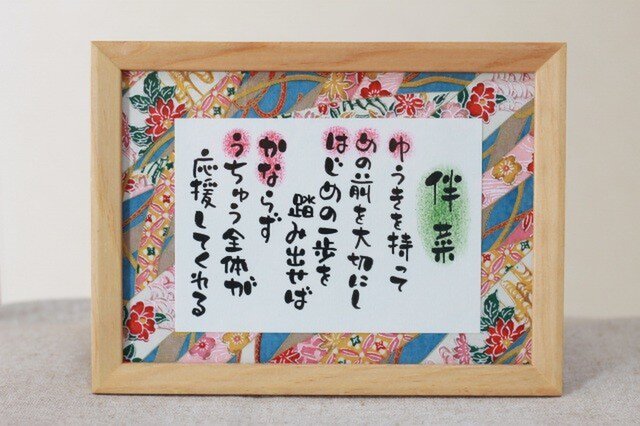 伴菜
ゆうきを持って
めの前を大切にし
はじめの一歩を
踏み出せば
かならず
うちゅう全体が
応援してくれる